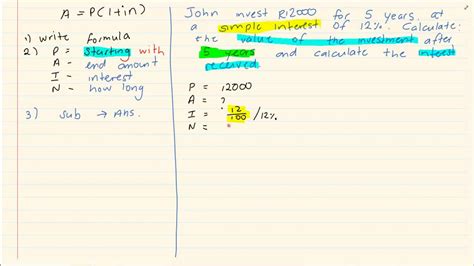 A = P(1+in)
1) write formula
2) P = Starting with
A - end amount
I - interest
N - how long
3) Sub → Ans.
John invest R12000 for 5 years at
a simple interest of 12%. Calculate:
the value of the investment after
5 years and calculate the interest
received.
P = 12000
A = ?
I = 12/100 /12%
N =